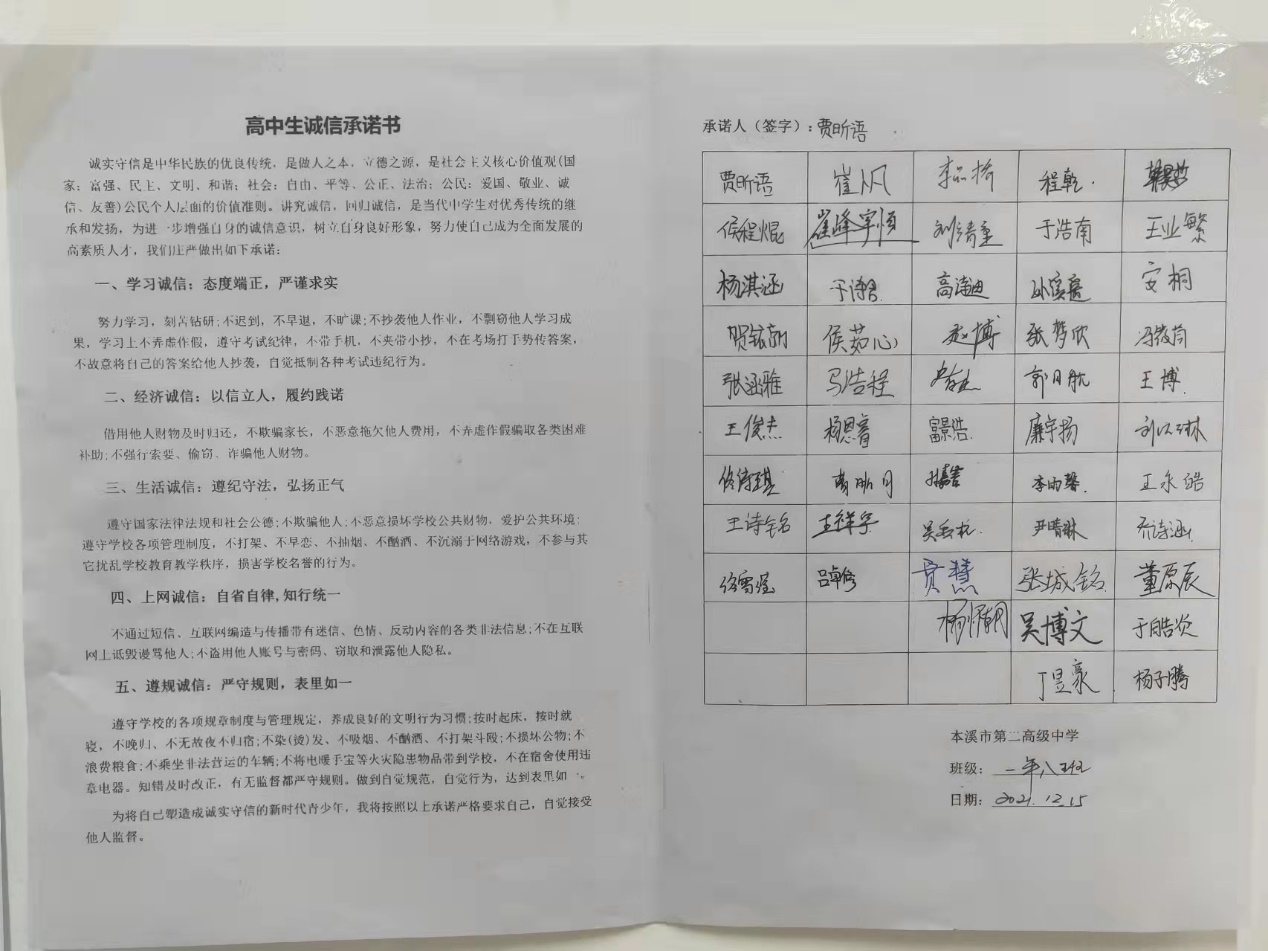 高中生诚信承诺书
诚实守信是中华民族的优良传统，是做人之本，立德之源，是社会主义核心价值观(国
家：富强、民主、文明、和谐；社会：自由、平等、公正、法治；公民：爱国、敬业、诚
信、友善)公民个人层面的价值准则。讲究诚信，回归诚信，是当代中学生对优秀传统的继
承和发扬，为进一步增强自身的诚信意识，树立自身良好形象，努力使自己成为全面发展的
高素质人才，我们庄严做出如下承诺：
一、学习诚信：态度端正，严谨求实
努力学习，刻苦钻研;不迟到，不早退，不旷课;不抄袭他人作业，不剽窃他人学习成
果，学习上不弄虚作假，遵守考试纪律，不带手机，不夹带小抄，不在考场打手势传答案，
不故意将自己的答案给他人抄袭，自觉抵制各种考试违纪行为。
二、经济诚信：以信立人，履约践诺
借用他人财物及时归还，不欺骗家长，不恶意拖欠他人费用，不弄虚作假骗取各类困难
补助;不强行索要、偷窃、诈骗他人财物。
三、生活诚信：遵纪守法，弘扬正气
遵守国家法律法规和社会公德;不欺骗他人;不恶意损坏学校公共财物，爱护公共环境;
遵守学校各项管理制度，不打架、不早恋、不抽烟、不酗酒、不沉溺于网络游戏，不参与其
它扰乱学校教育教学秩序，损害学校名誉的行为。
四、上网诚信：自省自律,知行统一
不通过短信、互联网编造与传播带有迷信、色情、反动内容的各类非法信息;不在互联
网上诋毁谩骂他人;不盗用他人账号与密码、窃取和泄露他人隐私。
五、遵规诚信：严守规则，表里如一
遵守学校的各项规章制度与管理规定，养成良好的文明行为习惯;按时起床，按时就
寝，不晚归、不无故夜不归宿;不染(烫)发、不吸烟、不酗酒、不打架斗殴;不损坏公物;不
浪费粮食;不乘坐非法营运的车辆;不将电暖手宝等火灾隐患物品带到学校，不在宿舍使用违
章电器。知错及时改正，有无监督都严守规则。做到自觉规范，自觉行为，达到表里如一。
为将自己塑造成诚实守信的新时代青少年，我将按照以上承诺严格要求自己，自觉接受
他人监督。
承诺人（签字）：贾昕语
贾昕语 崔从风 程乾
侯程焜 崔峰宇恒 刘靖童 于浩南 王业繁
杨淇涵 安桐
贺铭朗 侯茹心 赵博 张梦欣
张涵雅 马浩程 郭月航 王博
王俊杰 杨恩睿 富景浩 廉宇扬
李雨馨 王永皓
王诗铭 王祥宇 尹晴琳 乔诗涵
贾慧 张城铭 董原辰
吴博文 于皓次
丁昱豪 杨子腾
本溪市第二高级中学
班级：一年八班
日期：2021.12.15